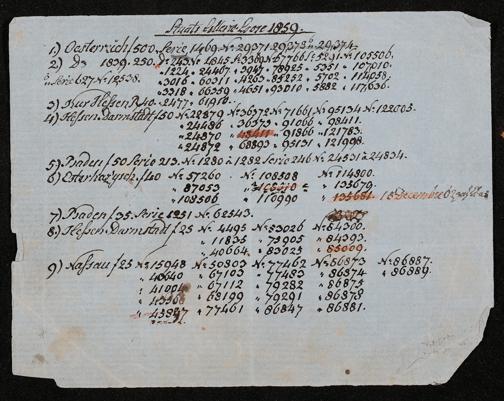 Staats Lotterie Loose 1859.
1) Oesterreich f 500. Serie 1469 No 29371. 29373 u 29374.
2) do 1839. 250. 243 No 4845 3369 No 77661 5291 No 105506.
" 1224 " 24467 " 3947 " 78925 " 5351 " 107010.
Serie 627 No 12538. " 3016 " 60311 " 4263 " 85252 " 5702 " 114038.
" 3318 " 66359 " 4651 " 93010 " 5882 " 117636.
3) Kur Hessen R 40. 2477. 61910.
4) Hessen Darmstadt f 50 No 22879 No 36372 No 71661 No 95134 No 122003.
" 24486 " 36373 " 91066 " 98411.
" 24870 " 91866 " 121783.
" 24872 " 68893 " 95131 " 121998.
5) Baden f 50 Serie 213. No 1280 à 1282 Serie 246 No 24531 à 24834.
6) Esterhazysch. f 40 No 57260 No 108508 No 114800.
" 87053 " 135679.
" 108506 " 110990 " 18 Decembre
7) Baden f 35 Serie 1251 No 62543.
8) Hessen Darmstadt f 25 No 4495 No 53026 No 84300.
" 11835 " 73905 " 84393.
" 40664 " 83025 " 85009.
9) Nassau f 25 No 15048 No 50803 No 77462 No 86873 No 86887.
" 40640 " 67103 " 77483 " 86874 " 86889.
" 41004 " 67112 " 79282 " 86875
" 43368 " 68199 " 79291 " 86878
" 43847 " 77461 " 86847 " 86881.